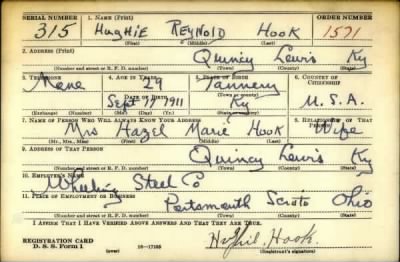 SERIAL NUMBER 1. NAME (Print) ORDER NUMBER
315 HUGHIE REYNOLD HOOK 1571
(First) (Middle) (Last)
2. ADDRESS (Print)
Quincy Lewis Ky
(Number and street or R. F. D. number) (Town) (County) (State)
3. TELEPHONE 4. AGE IN YEARS 5. PLACE OF BIRTH 6. COUNTRY OF CITIZENSHIP
None 29 Tannery
DATE OF BIRTH (Town or county)
Sept 1911 Ky U.S.A.
(Mo.) (Day) (Yr.) (State or country)
7. NAME OF PERSON WHO WILL ALWAYS KNOW YOUR ADDRESS 8. RELATIONSHIP OF THAT PERSON
Mrs Hazel Marie Hook Wife
(Mr., Mrs., Miss) (First) (Middle) (Last)
9. ADDRESS OF THAT PERSON
Quincy Lewis Ky
(Number and street or R. F. D. number) (Town) (County) (State)
10. EMPLOYER'S NAME
Wheeling Steel Co
11. PLACE OF EMPLOYMENT OR BUSINESS
Portsmouth Scioto Ohio
(Number and street or R. F. D. number) (Town) (County) (State)
I AFFIRM THAT I HAVE VERIFIED ABOVE ANSWERS AND THAT THEY ARE TRUE.
REGISTRATION CARD
D. S. S. Form 1 16-17105 Hook
(Registrant's signature)